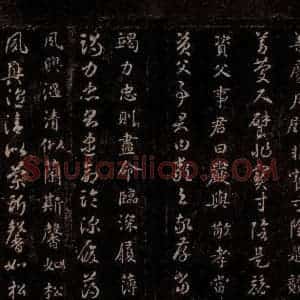 善慶尺璧非寶寸陰是競
資父事君曰嚴與敬孝當
資父事君曰嚴與敬孝當
竭力忠則盡命臨深履薄
竭力忠則盡命臨深履薄
夙興溫凊似蘭斯馨如松
夙興溫凊似蘭斯馨如松
Shufaziliao.com